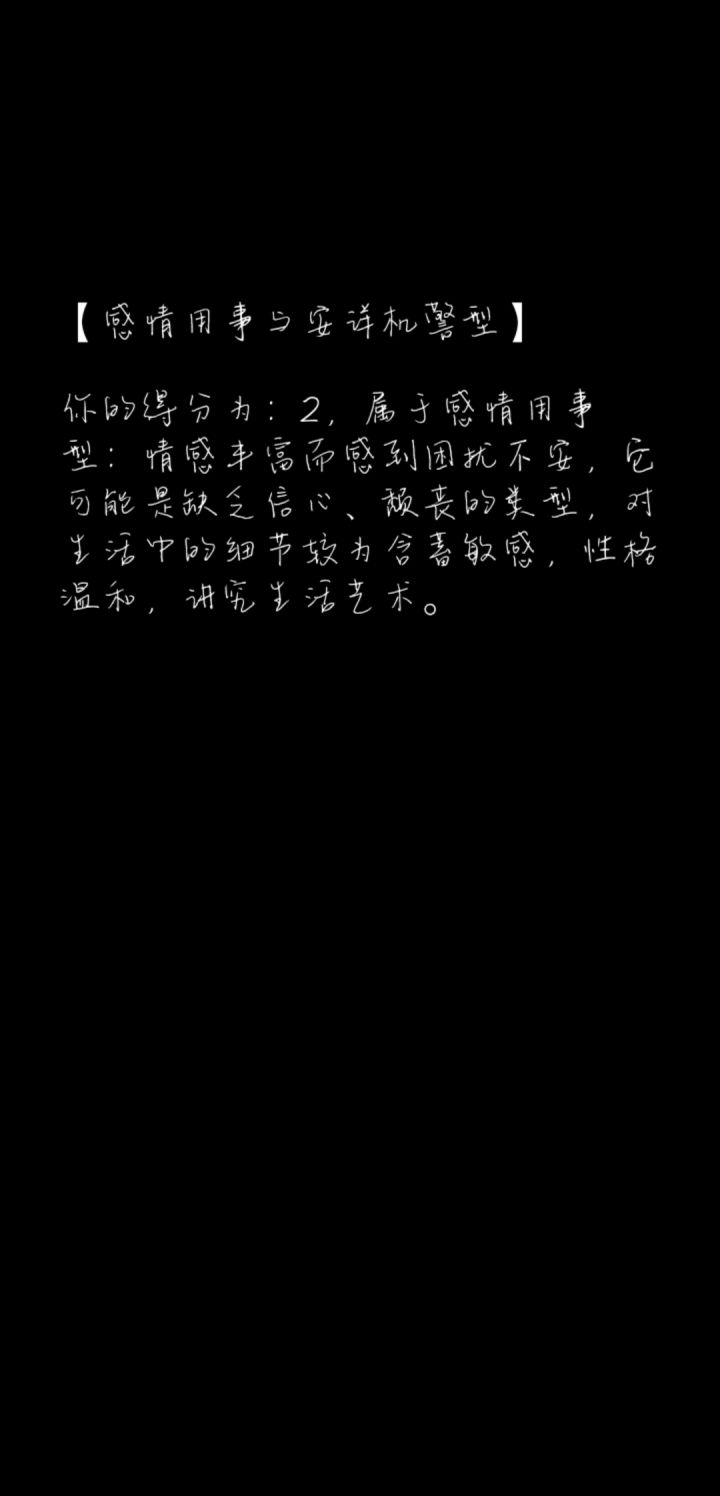 【感情用事与安详机警型】
你的得分为：2，属于感情用事
型：情感丰富而感到困扰不安，它
可能是缺乏信心、颓丧的类型，对
生活中的细节较为含蓄敏感，性格
温和，讲究生活艺术。